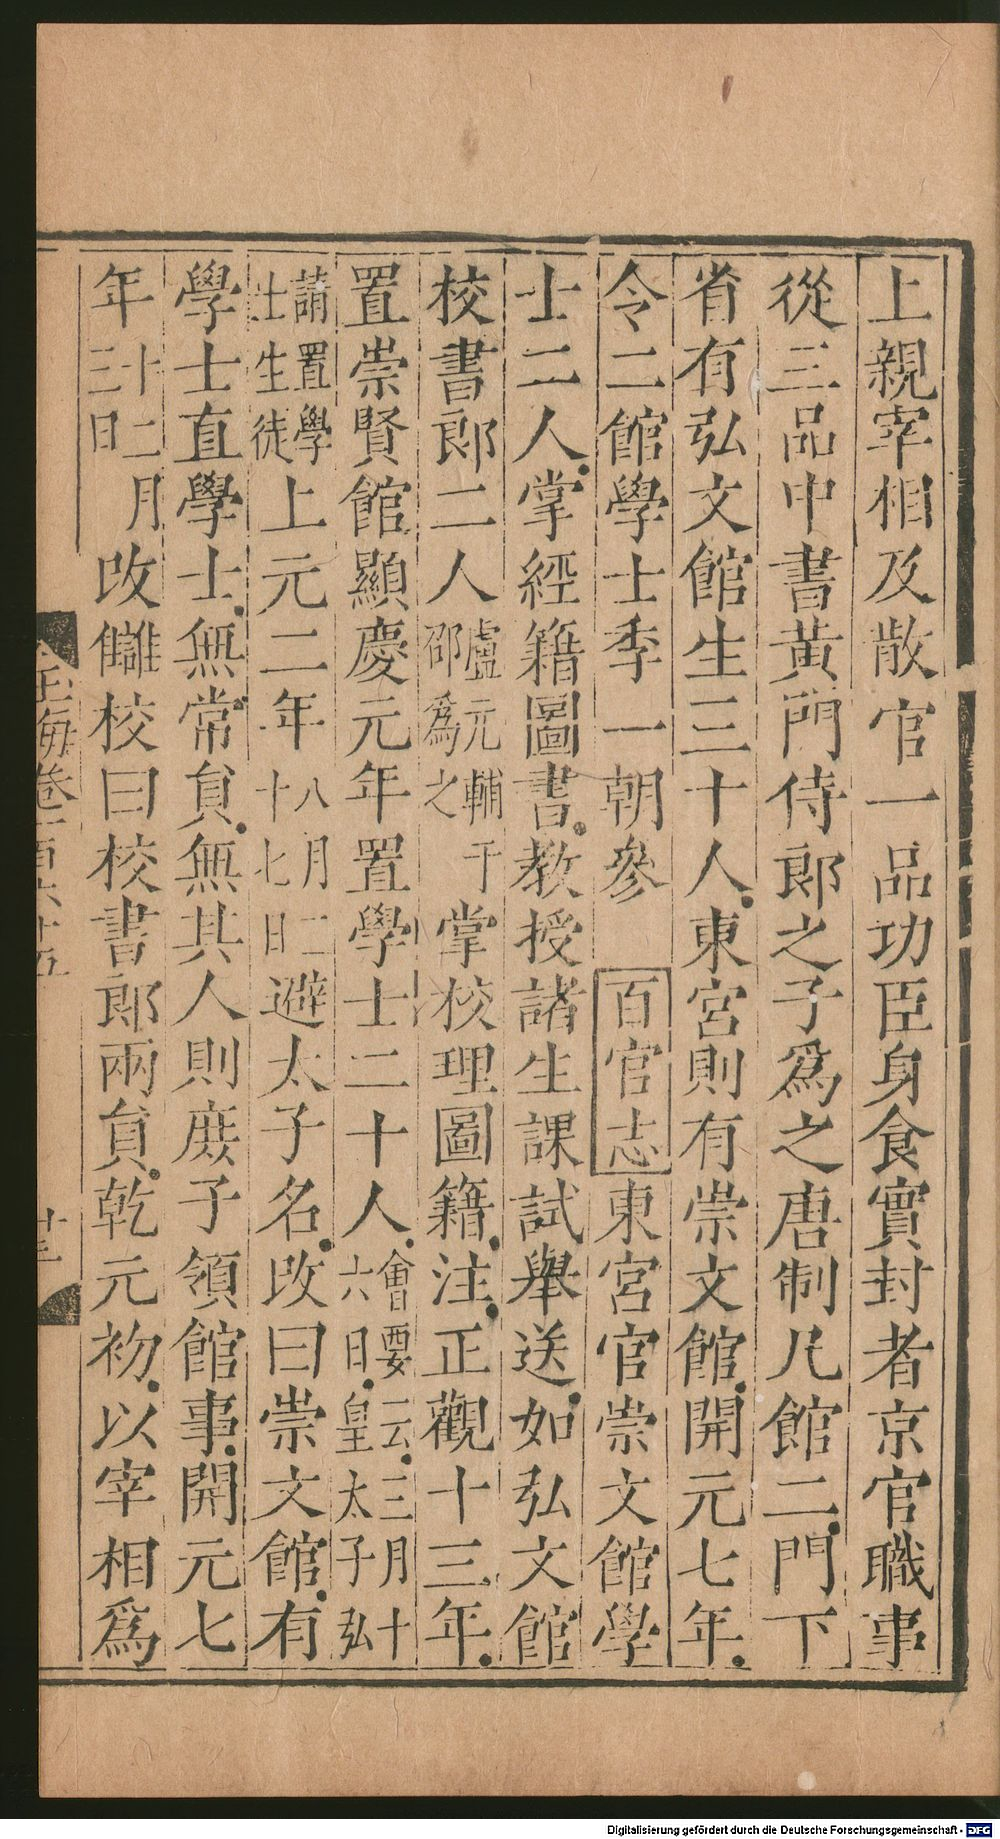 上親宰相及散官一品功臣身食實封者京官職事
從三品中書黃門侍郎之子爲之唐制凡館二門下
省有弘文館生三十人東宮則有崇文館開元七年
令二館學士季一朝參　百官志東宮官崇文館學
士二人掌經籍圖書教授諸生課試舉送如弘文館
校書郎二人盧元輔于邵爲之掌校理圖籍注正觀十三年
置崇賢館顯慶元年置學士二十人會要云三月十六日皇太子弘
請置學士生徒上元二年八月二十七日避太子名改曰崇文館有
學士直學士無常負無其人則庶子領館事開元七
年十二月三日改讎校曰校書郎兩負乾元初以宰相爲
玉海卷一百六十五　廿三
Digitalisierung gefördert durch die Deutsche Forschungsgemeinschaft - DFG